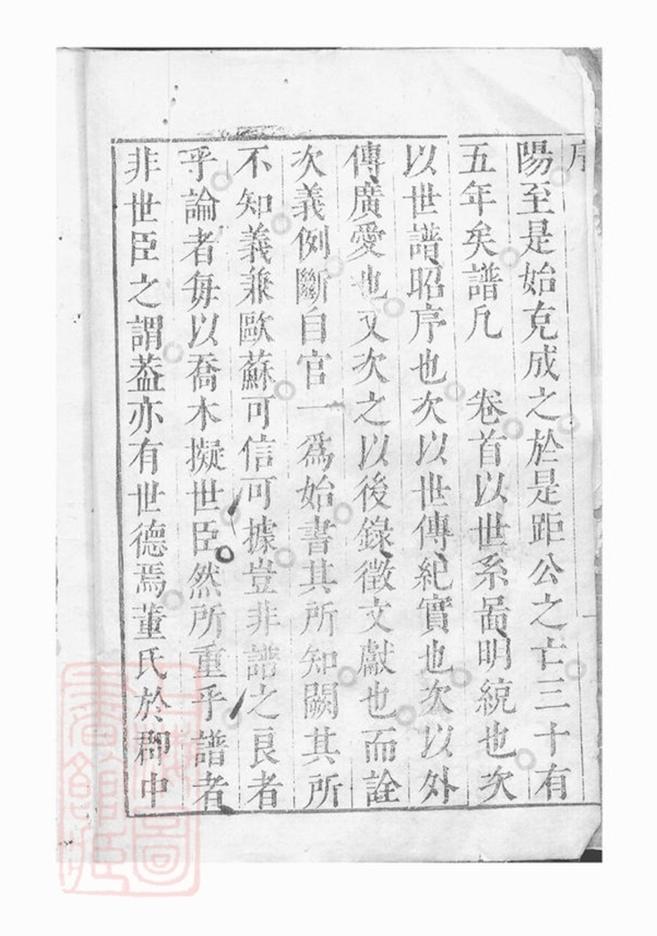 序
陽至是始克成之於是距公之亡三十有
五年矣譜凡　卷首以世系啚明統也次
以世譜昭序也次以世傳紀實也次以外
傳廣愛也又次之以後錄徵文獻也而詮
次義例斷自官一爲始書其所知闕其所
不知義兼歐蘇可信可據豈非譜之良者
乎論者每以喬木擬世臣然所重乎譜者
非世臣之謂葢亦有世德焉董氏於郡中